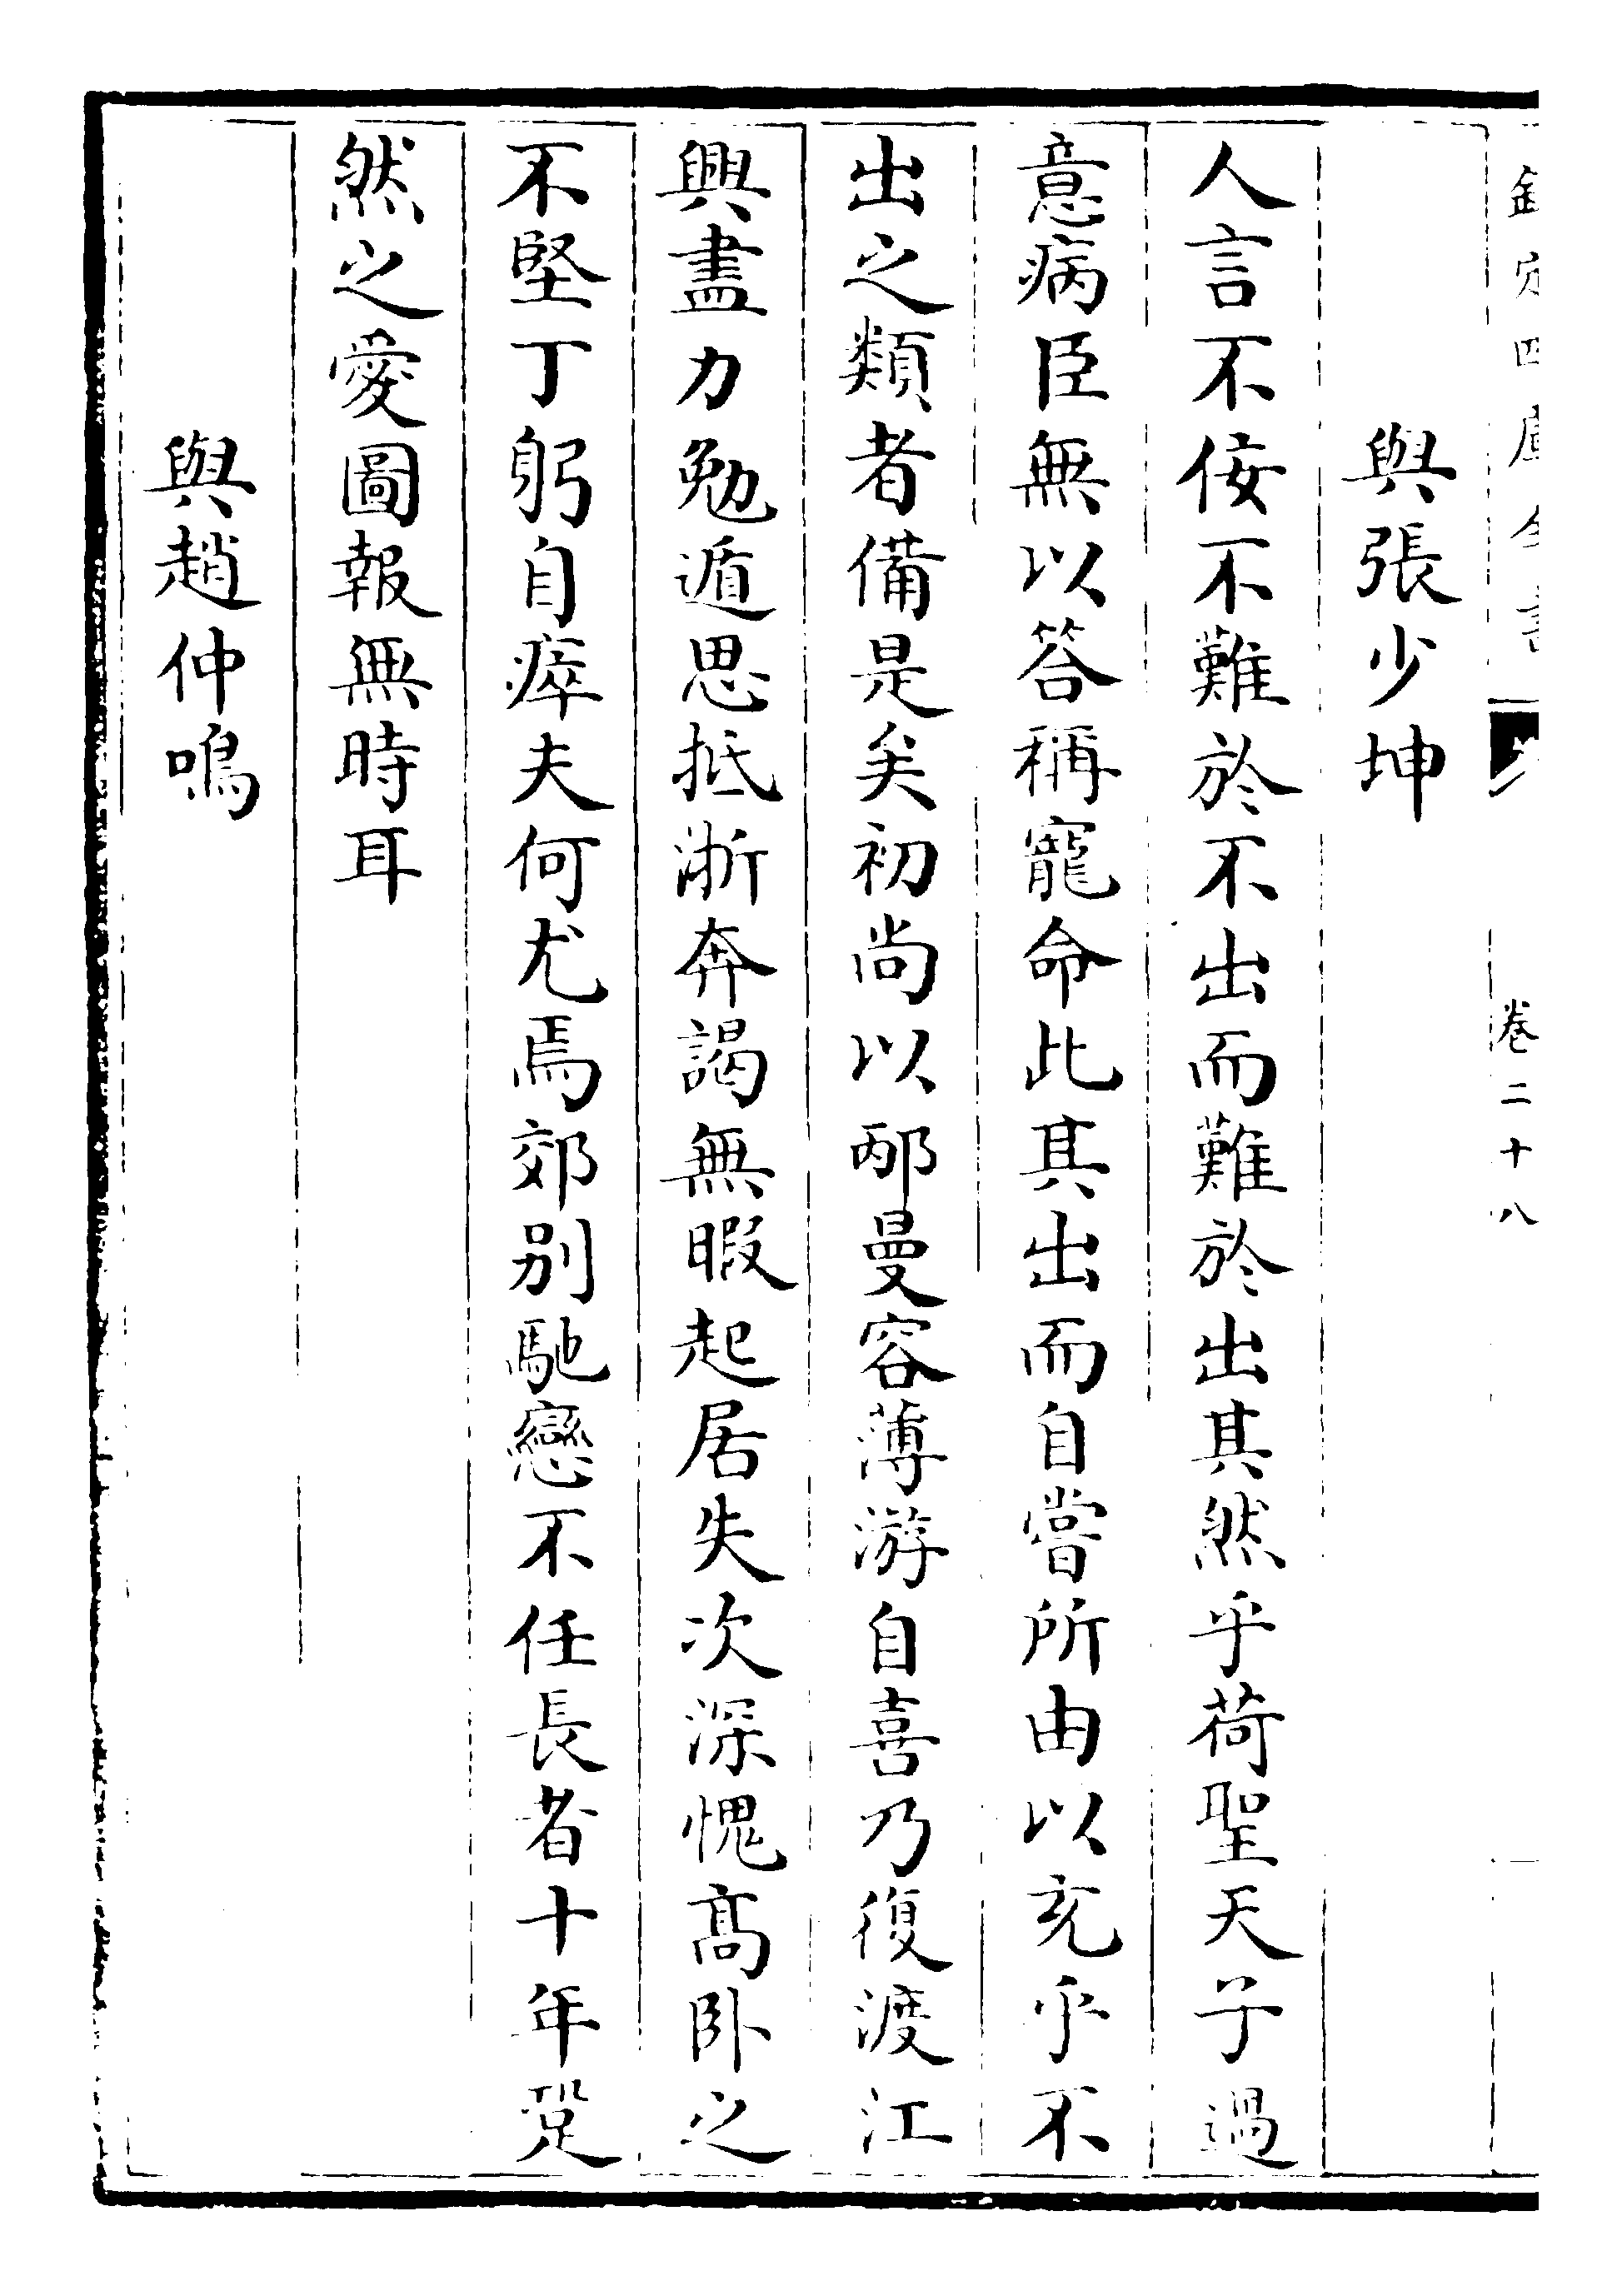 欽定四庫全書
卷二十八
與張少坤
人言不佞不難於不出而難於出其然乎荷聖天子過
意病臣無以答稱寵命此其出而自嘗所由以充乎不
出之類者備是矣初尚以邴曼容薄游自喜乃復渡江
興盡力勉遁思抵淅奔謁無暇起居失次深愧高卧之
不堅丁躬自瘁夫何尤焉郊别馳戀不任長者十年跫
然之愛圖報無時耳
與趙仲鳴